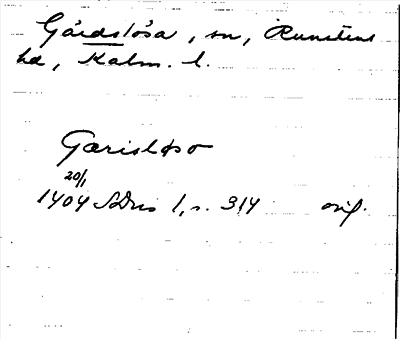 Gårdslösa, sn, Runstens
hd, Kalm. l.
Gærisløso
20/1
1404 SDns 1, s. 314 orig.